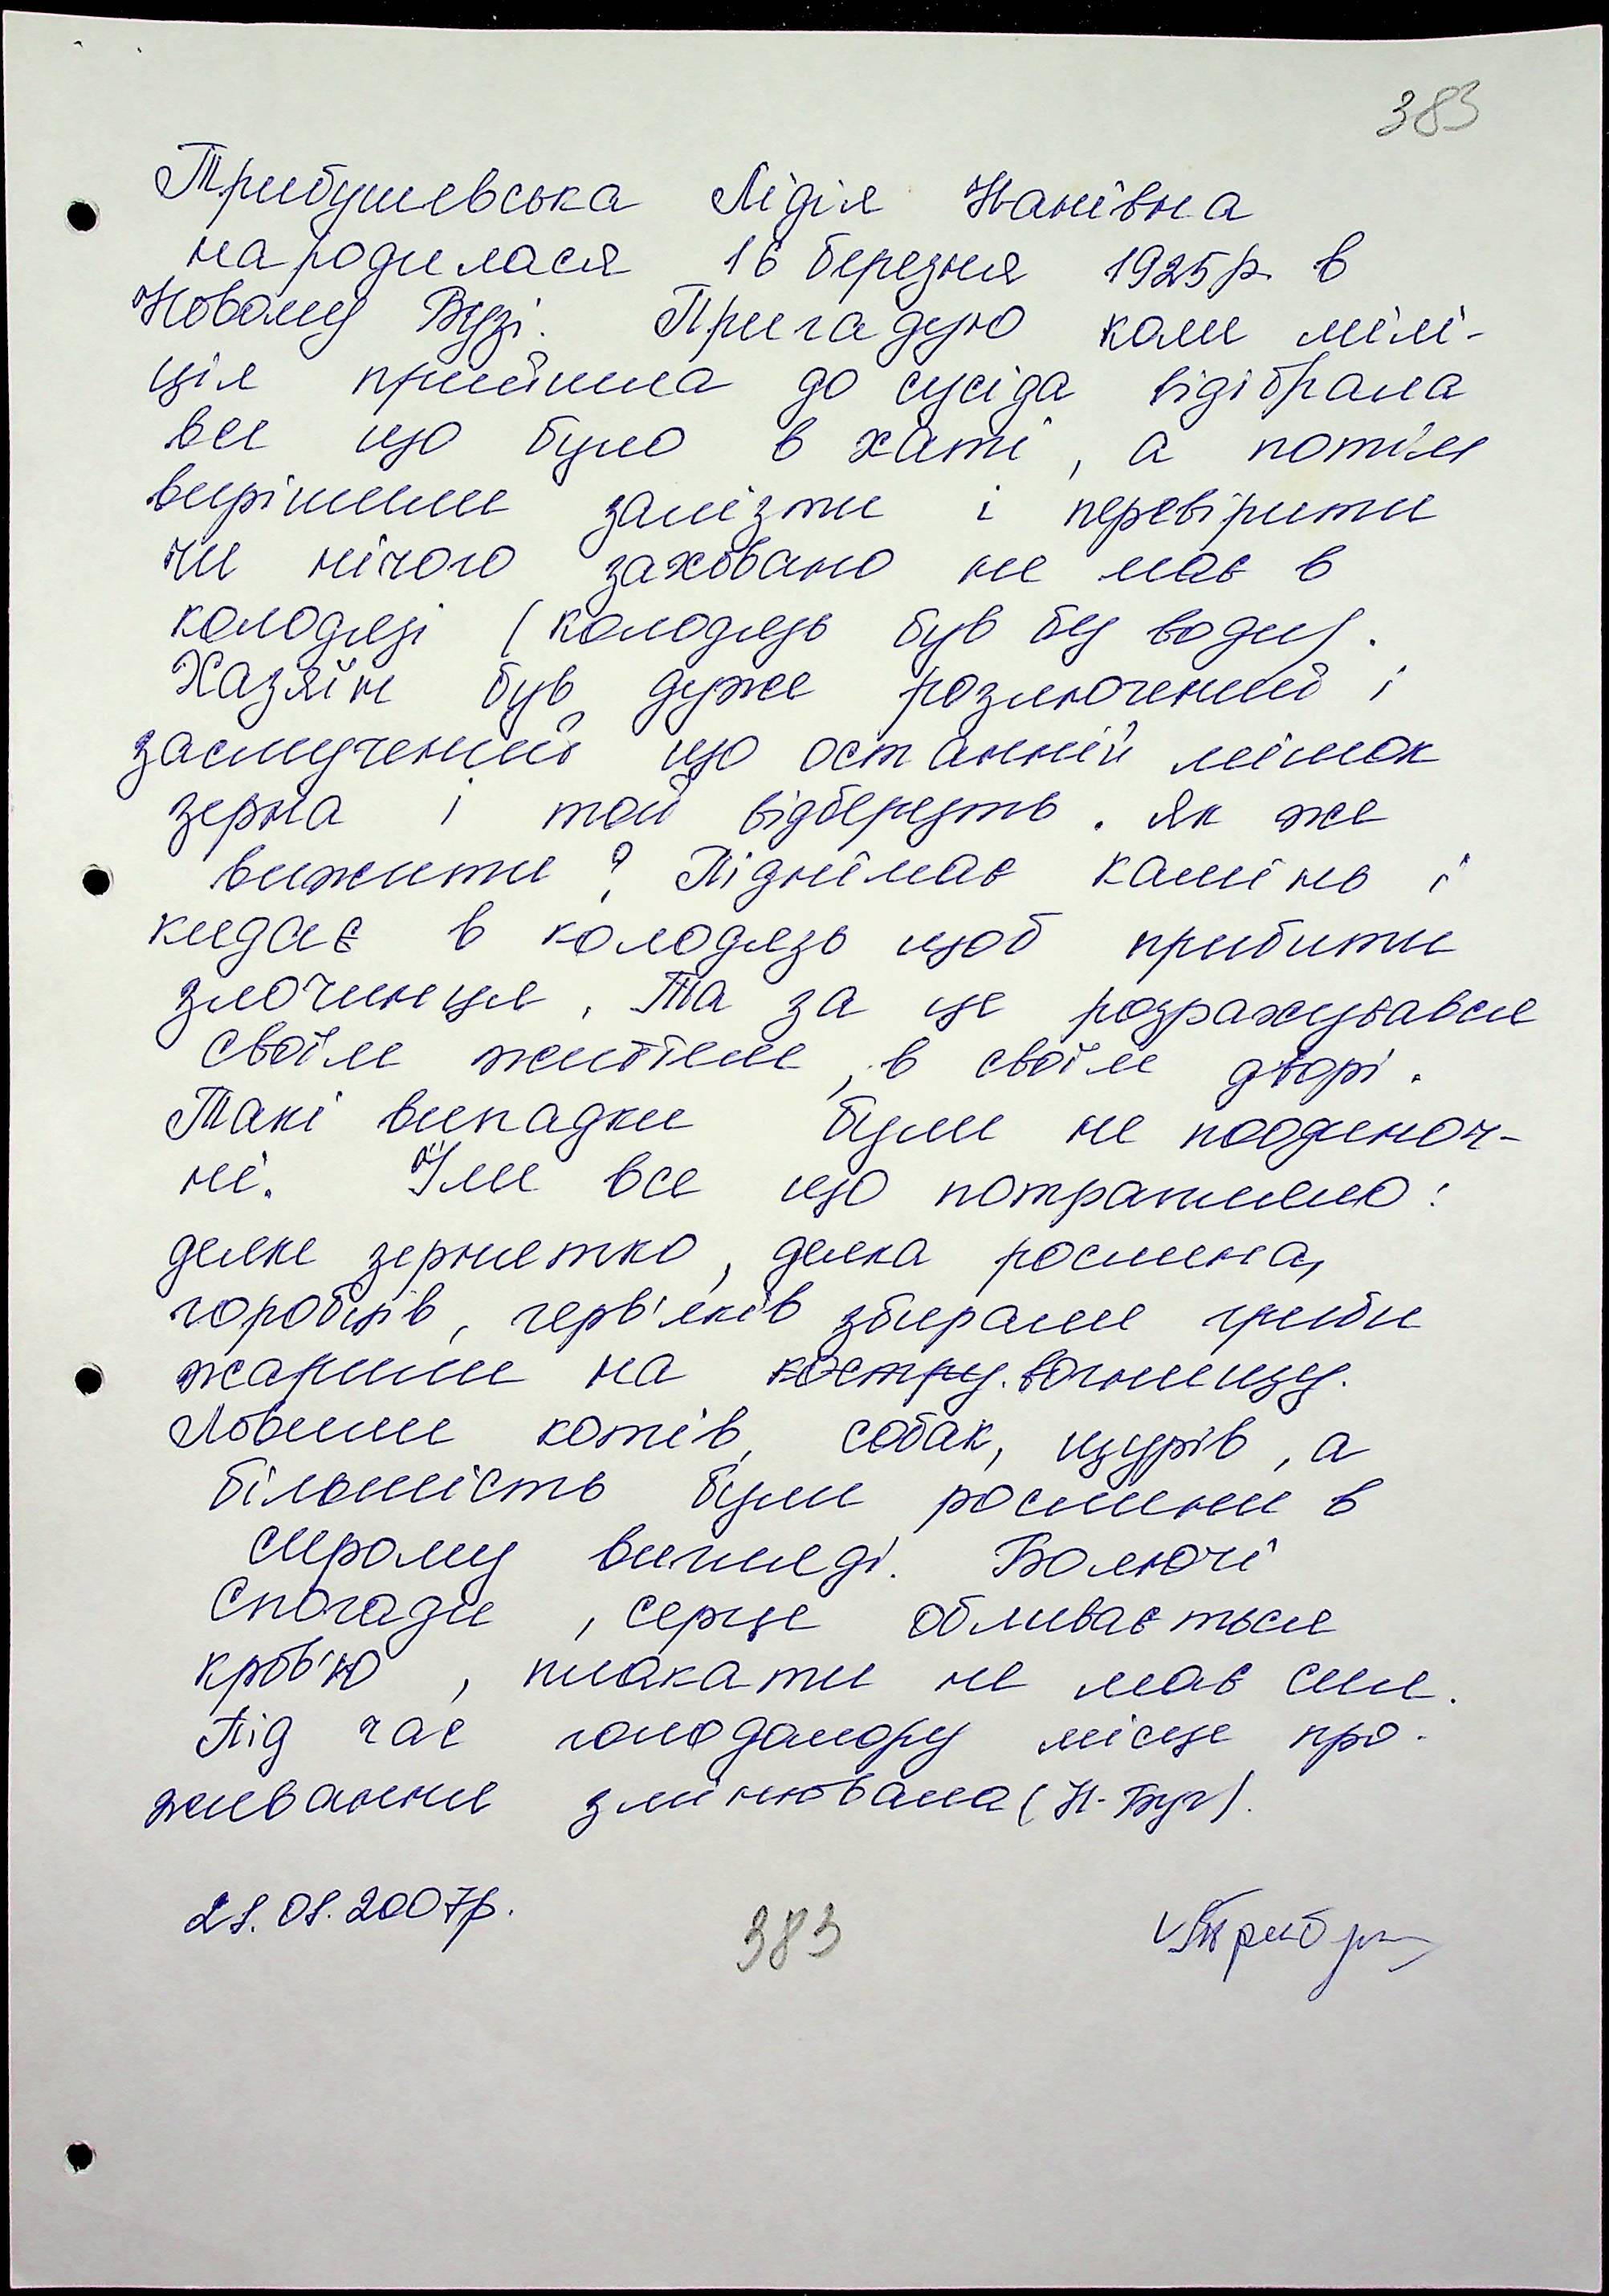 383
Трибушевська Лідія Іванівна
народилася 16 березня 1925р. в
Новому Бузі. Пригадую коли мілі-
ція прийшла до сусіда відібрала
все що було в хаті, а потім
вирішили залізти і перевірити
чи нічого заховано не має в
колодязі (колодязь був без води).
Хазяїн був дуже розлючений і
засмучений що останній мішок
зерна і той відберуть. Як же
вижити? Піднімає камінь і
кидає в колодязь щоб прибити
злочинця. Та за це розражувався
своїм життям, в своїм дворі.
Такі випадки були не пооденоч-
ні. Їли все що потрапило:
деяке зернятко, деяка рослина,
горобців, черв'яків збирали гриби
жарили на костру. вогнищу.
Ловили котів, собак, щурів, а
більшість були рослини в
сирому вигляді. Болючі
спогади, серце обливається
кров'ю, плакати не має сил.
Під час голодомору місце про-
живання змінювала (Н-Буг).
28.08.2007р.
383